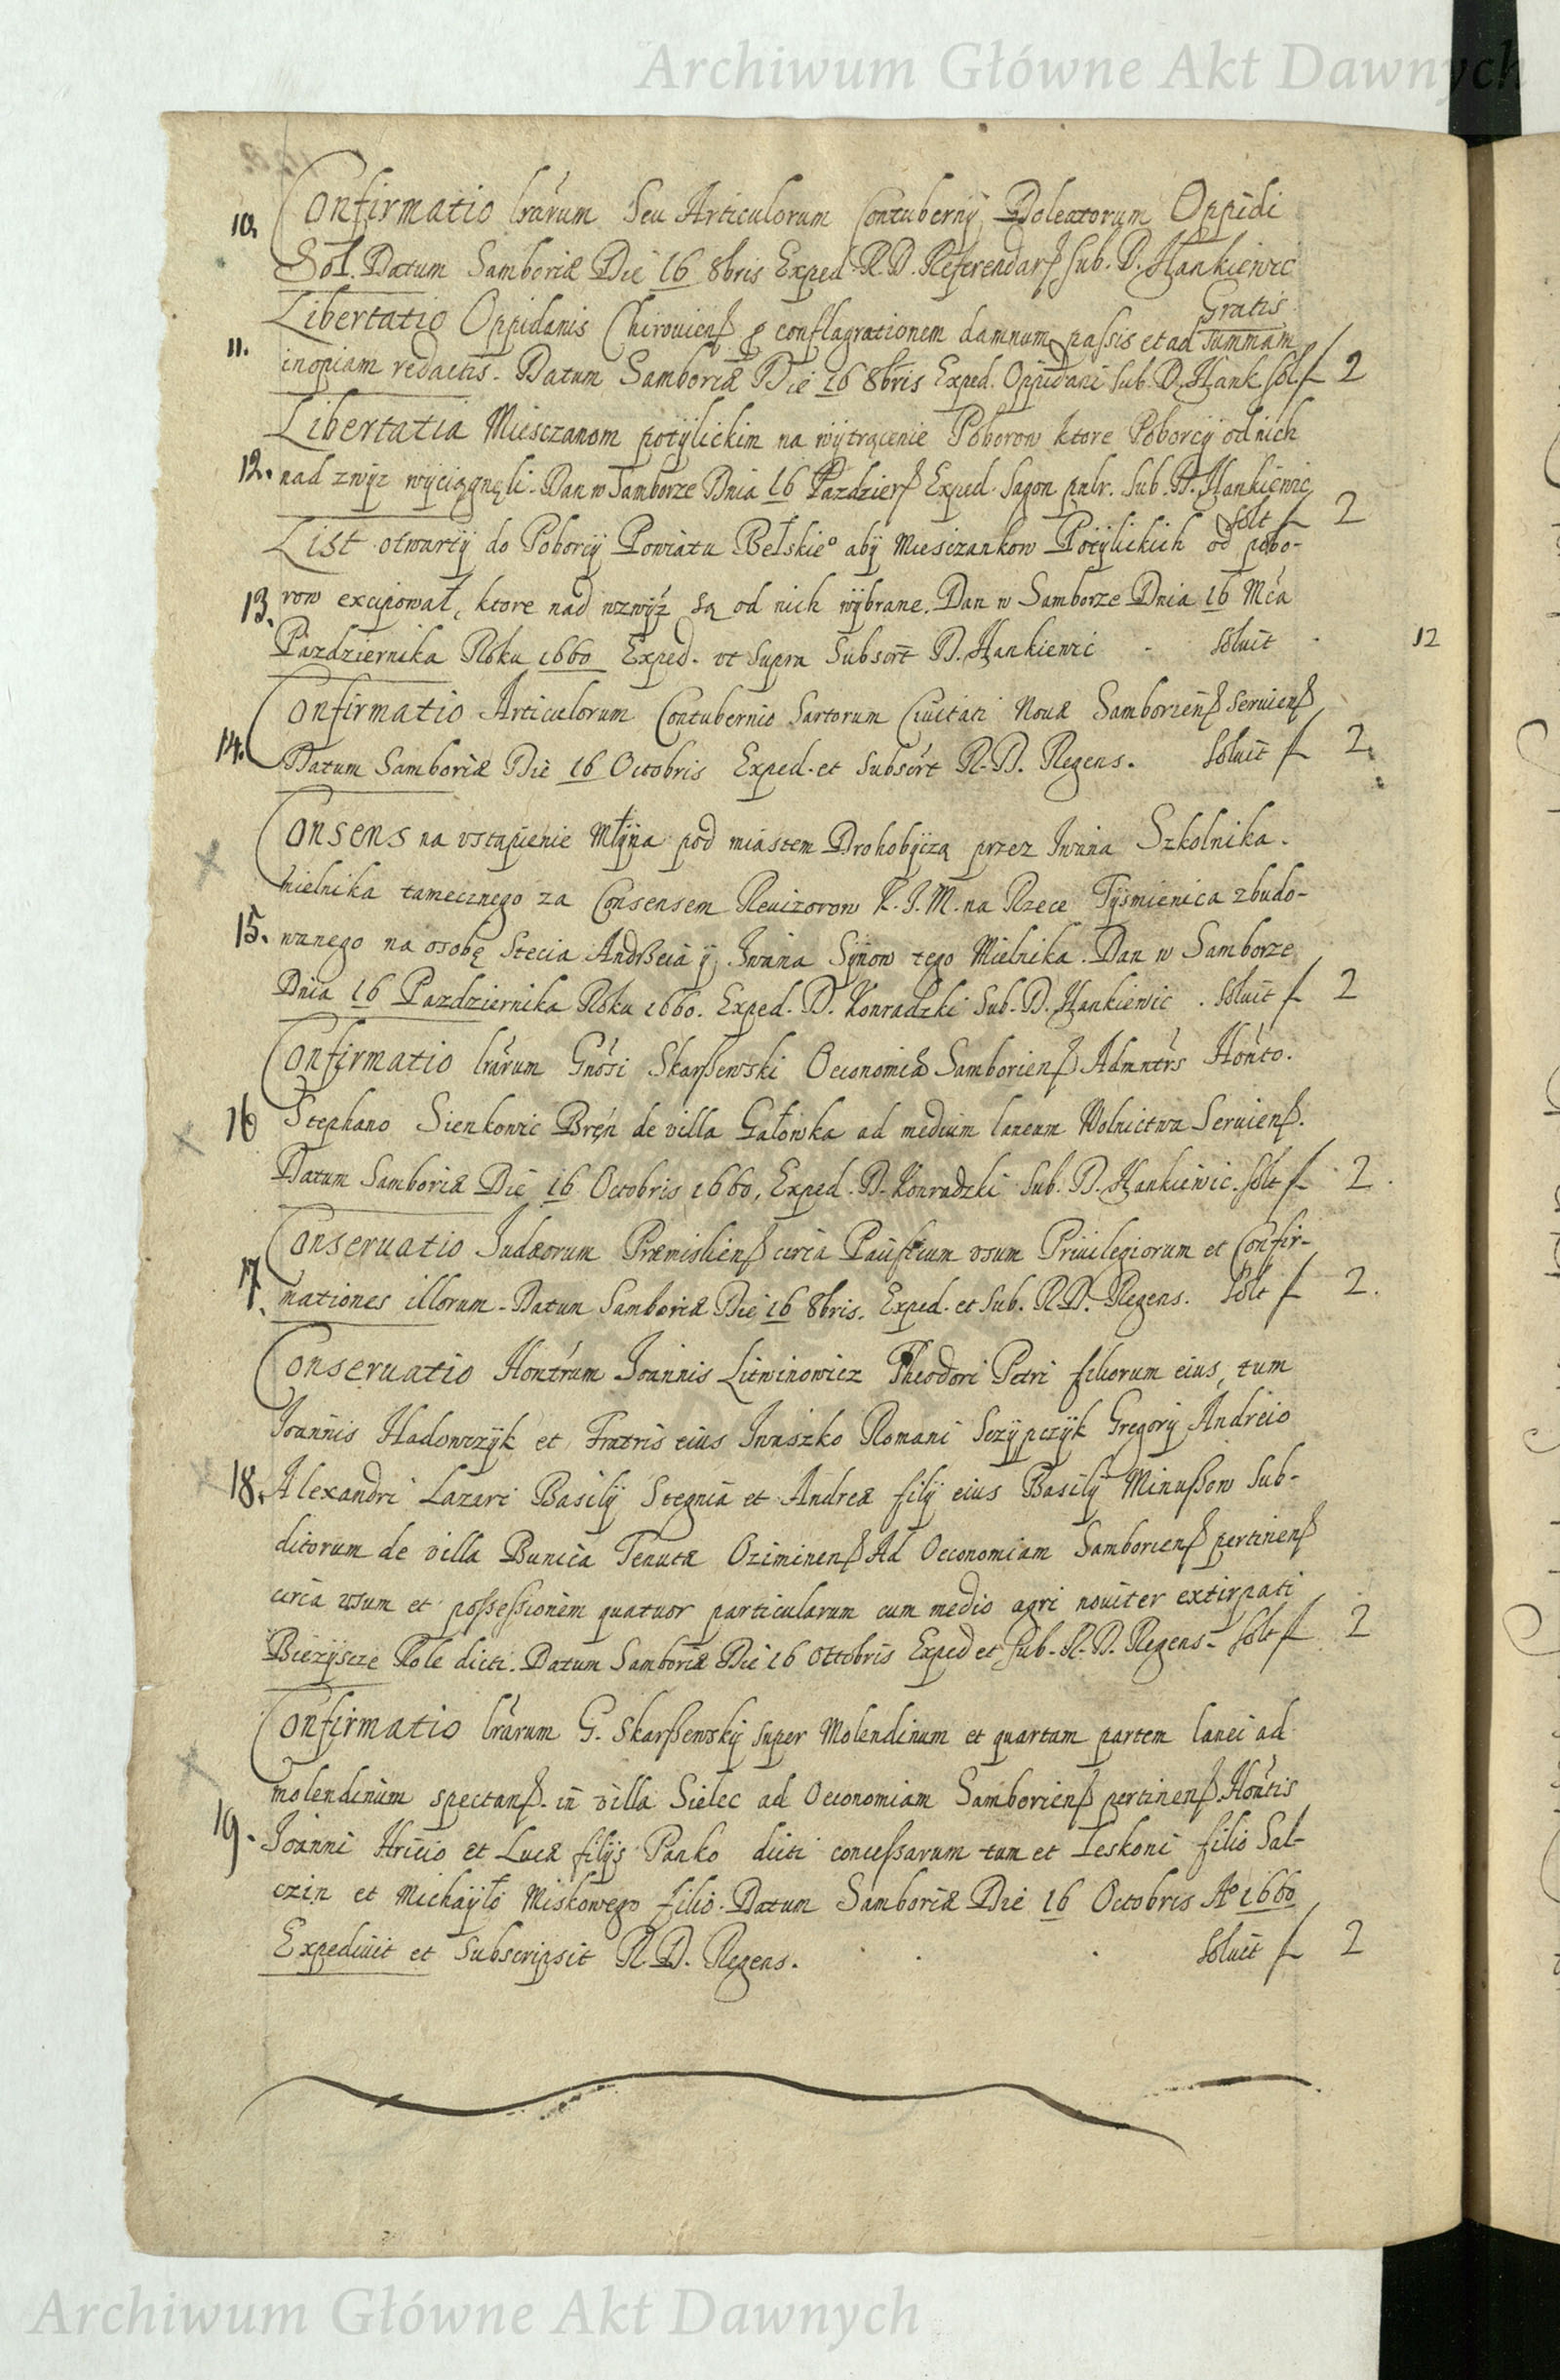 Archiwum Główne Akt Dawnych
10. Confirmatio lrarum Seu Articulorum Contubernij Doleatorum Oppidi
Sol. Datum Samboriæ Die 16 8bris Exped. R. D. Referendarß Sub. D. Hankiewic
Gratis
11. Libertatio Oppidanis Chirouienß p conflagrationem damnum passis et ad summam
inopiam redactis. Datum Samboriæ Die 16 8bris Exped. Oppidani Sub. D. Hank Sol. f 2
12. Libertatia Miesczanom potylickim na wytrącenie Poborow ktore Poborcy od nich
nad zwyz wyciągnęli. Dan w Samborze Dnia 16 Pazdzierß Exped. Sub. D. Hankiewic
Solt f 2
13. List otwarty do Poborcy Powiatu Bełskieº aby Miesczankow Potylickich od pobo-
row excipował, ktore nad wzwyż są od nich wybrane. Dan w Samborze Dnia 16 Mca
Pazdziernika Roku 1660 Exped. vt supra Subscrt D. Hankiewic - Soluit 12
14. Confirmatio Articulorum Contubernio Sartorum Ciuitati Nouæ Samborienß Seruienß
Datum Samboriæ Die 16 Octobris Exped. et Subscrt R. D. Regens. Soluit f 2.
Consens na vstąpienie Młyna pod miastem Drohobyczą przez Iwana Szkolnika.
Mielnika tamecznego za Consensem Reuizorow K. J. M. na Rzece Tysmienica zbudo-
15. wanego na osobę Stecia Andrßeia y Iwana Synow tego Mielnika. Dan w Samborze
Dnia 16 Pazdziernika Roku 1660. Exped. D. Konradzki Sub. D. Hankiewic. Soluit f 2
Confirmatio lrarum Gnosi Skarßewski Oeconomiæ Samborienß Admntrs Honto.
16 Stephano Sienkowic Breń de villa Gałowka ad medium laneum Wolnictwa Seruienß.
Datum Samboriæ Die 16 Octobris 1660. Exped. D. Konradzki Sub. D. Hankiewic. Solt f 2.
17. Conseruatio Judæorum Præmislienß circa usum Priuilegiorum et Confir-
mationes illorum. Datum Samboriæ Die 16 8bris. Exped. et Sub. R. D. Regens. Solt f 2.
Conseruatio Hontrum Joannis Litwinowicz Theodori Petri filiorum eius, tum
Joannis Hadowczyk et Fratris eius Iwaszko Romani Sczypczyk Gregorij Andreio
18. Alexandri Lazari Basilij Stegnia et Andreæ filij eius Basilij Minußow Sub-
ditorum de villa Bunica Tenutæ Oziminenß Ad Oeconomiam Samborienß pertinenß
circa usum et possessionem quatuor particularum cum medio agri nouiter extirpati
Biezyscze Role dicti. Datum Samboriæ Die 16 Octobris Exped et Sub. R. D. Regens. Solt f 2
Confirmatio lrarum G. Skarßewskij super Molendinum et quartam partem lanei ad
molendinum spectanß. in villa Sielec ad Oeconomiam Samborienß pertinenß. Hontis
19. Joanni Hricio et Lucæ filijs Panko dicti concessarum tum et Leskoni filio Sal-
czin et Michayło Miskowego filio. Datum Samboriæ Die 16 Octobris Aº 1660
Expediuit et Subscripsit R. D. Regens. Soluit f 2
Archiwum Główne Akt Dawnych